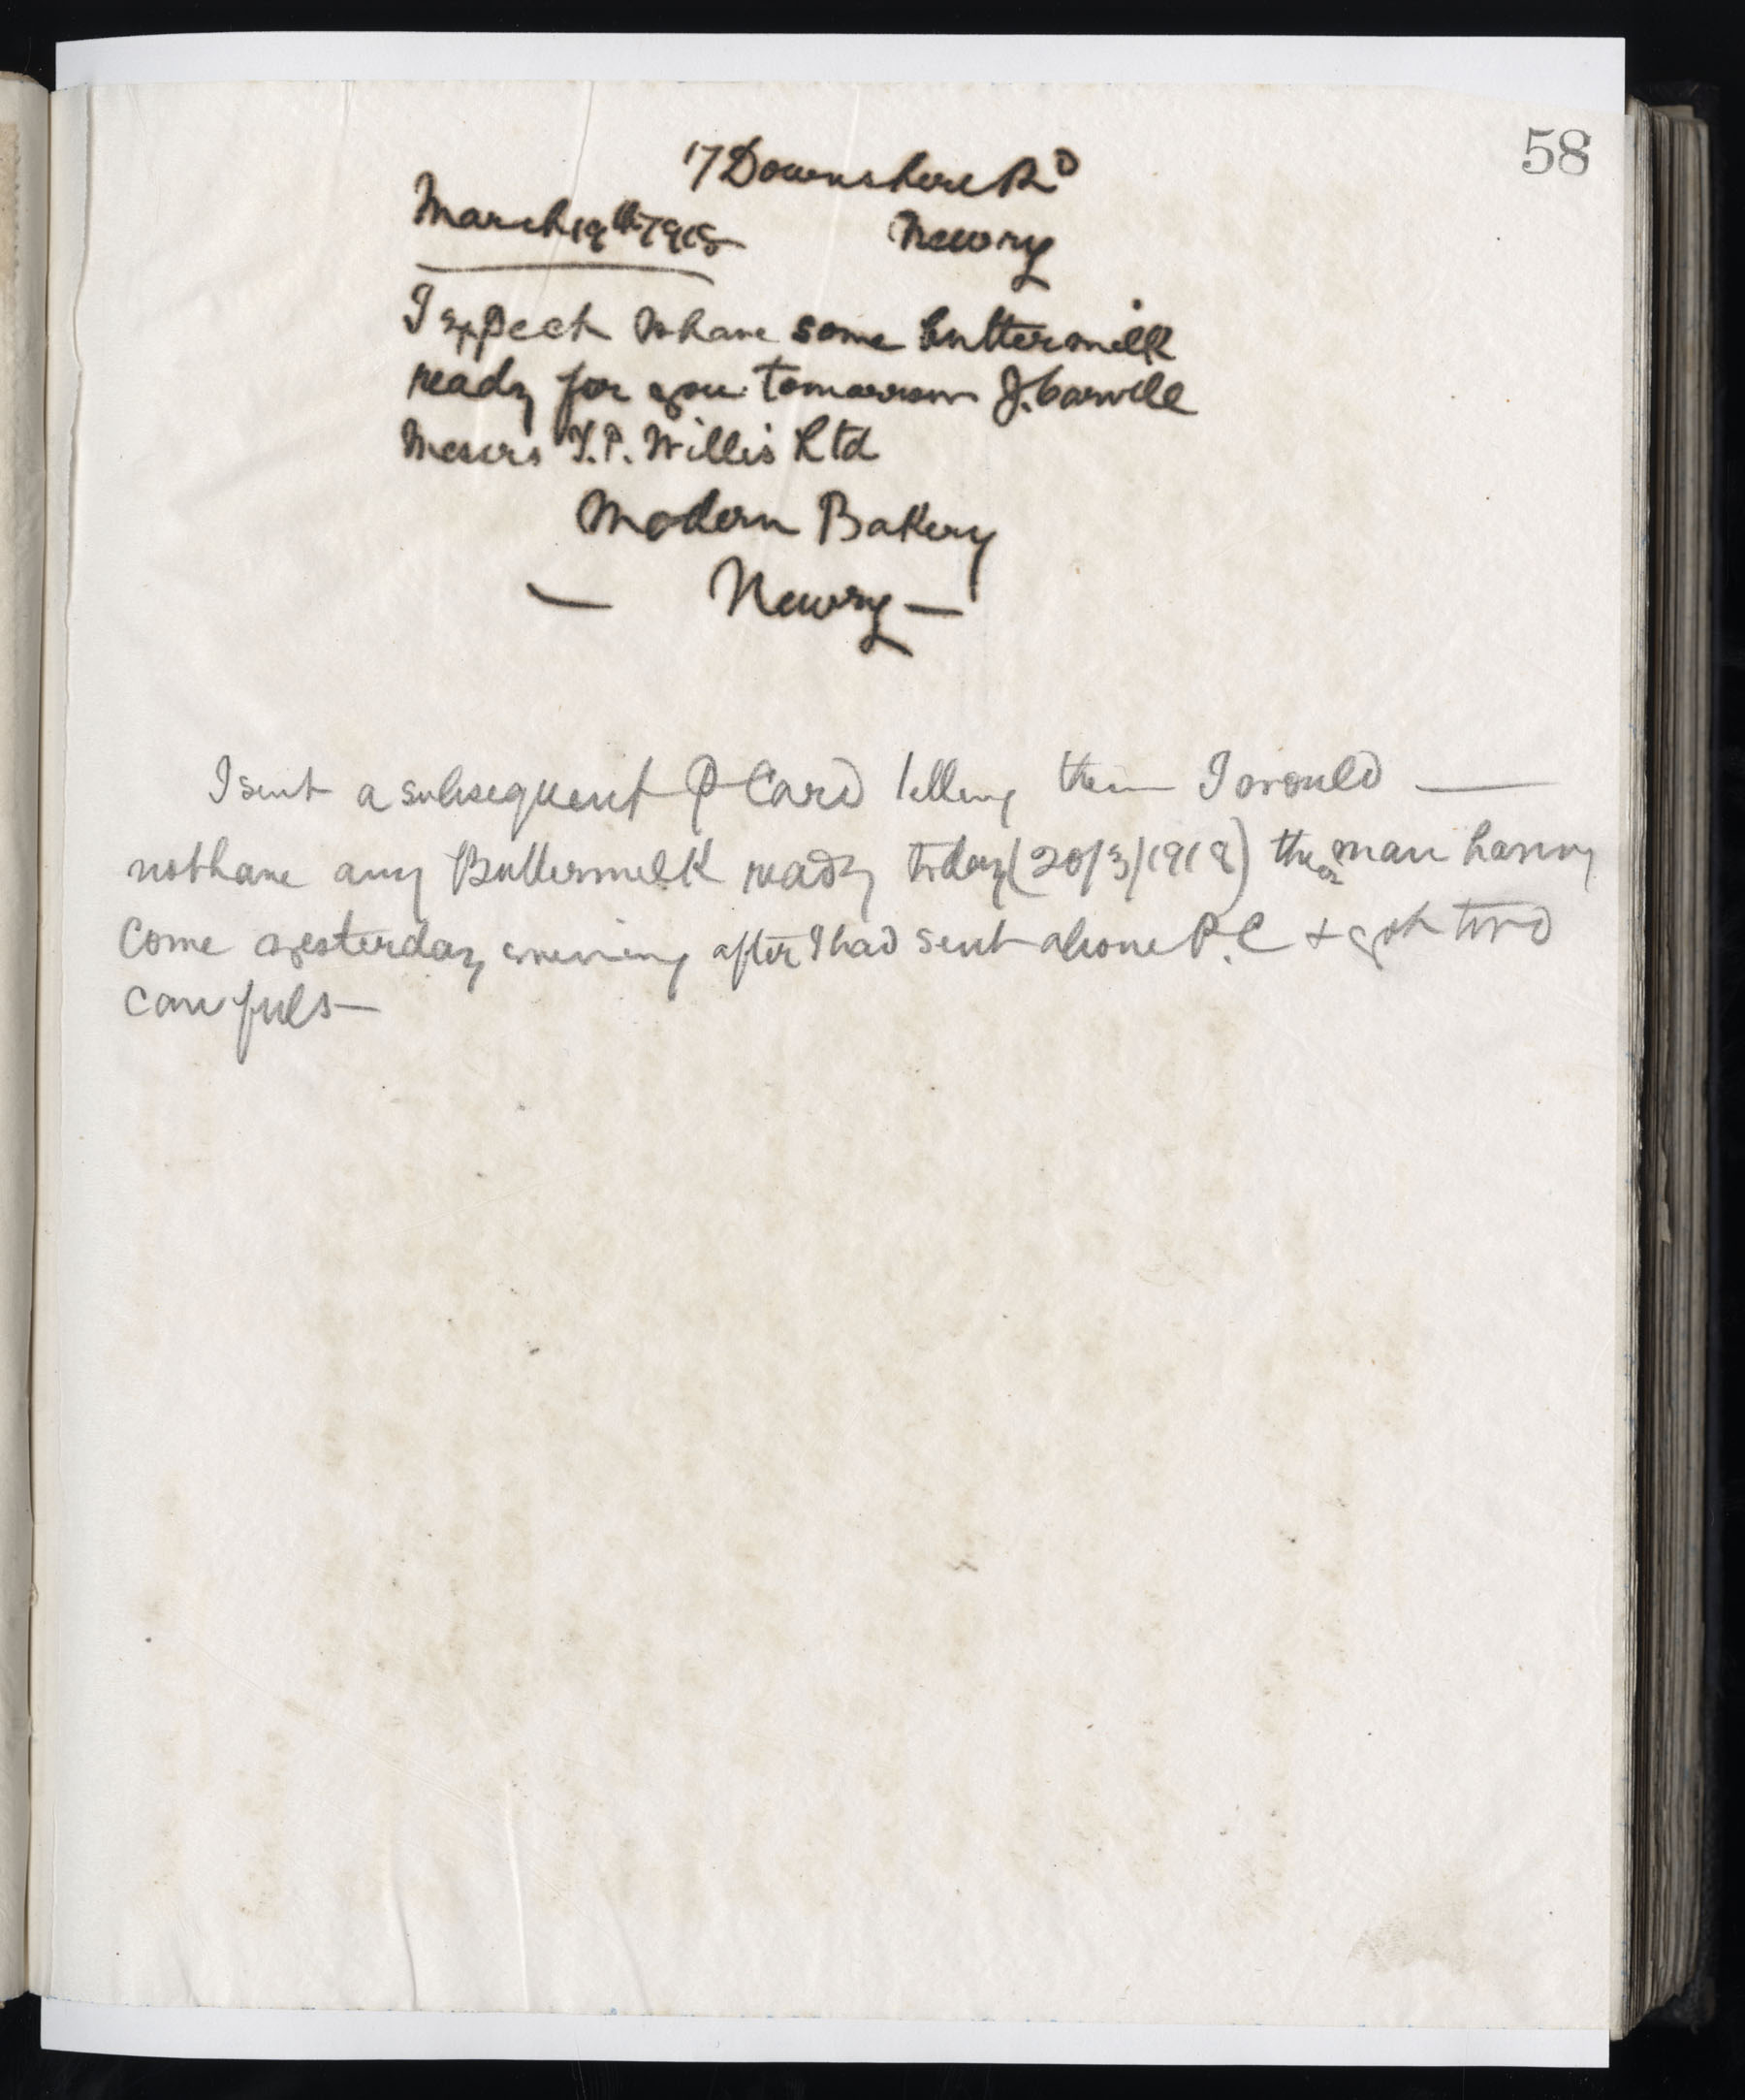 58
17 Downshire Rd
March 19th 1918 Newry
I expect to have some buttermilk
ready for you tomorrow J. Carvill
Messrs T.P. Willis Ltd
Modern Bakery
— Newry —
I sent a subsequent P Card telling them I would —
not have any Buttermilk ready today (20/3/1918) their man having
come yesterday evening after I had sent above P.C + got two
can fulls —